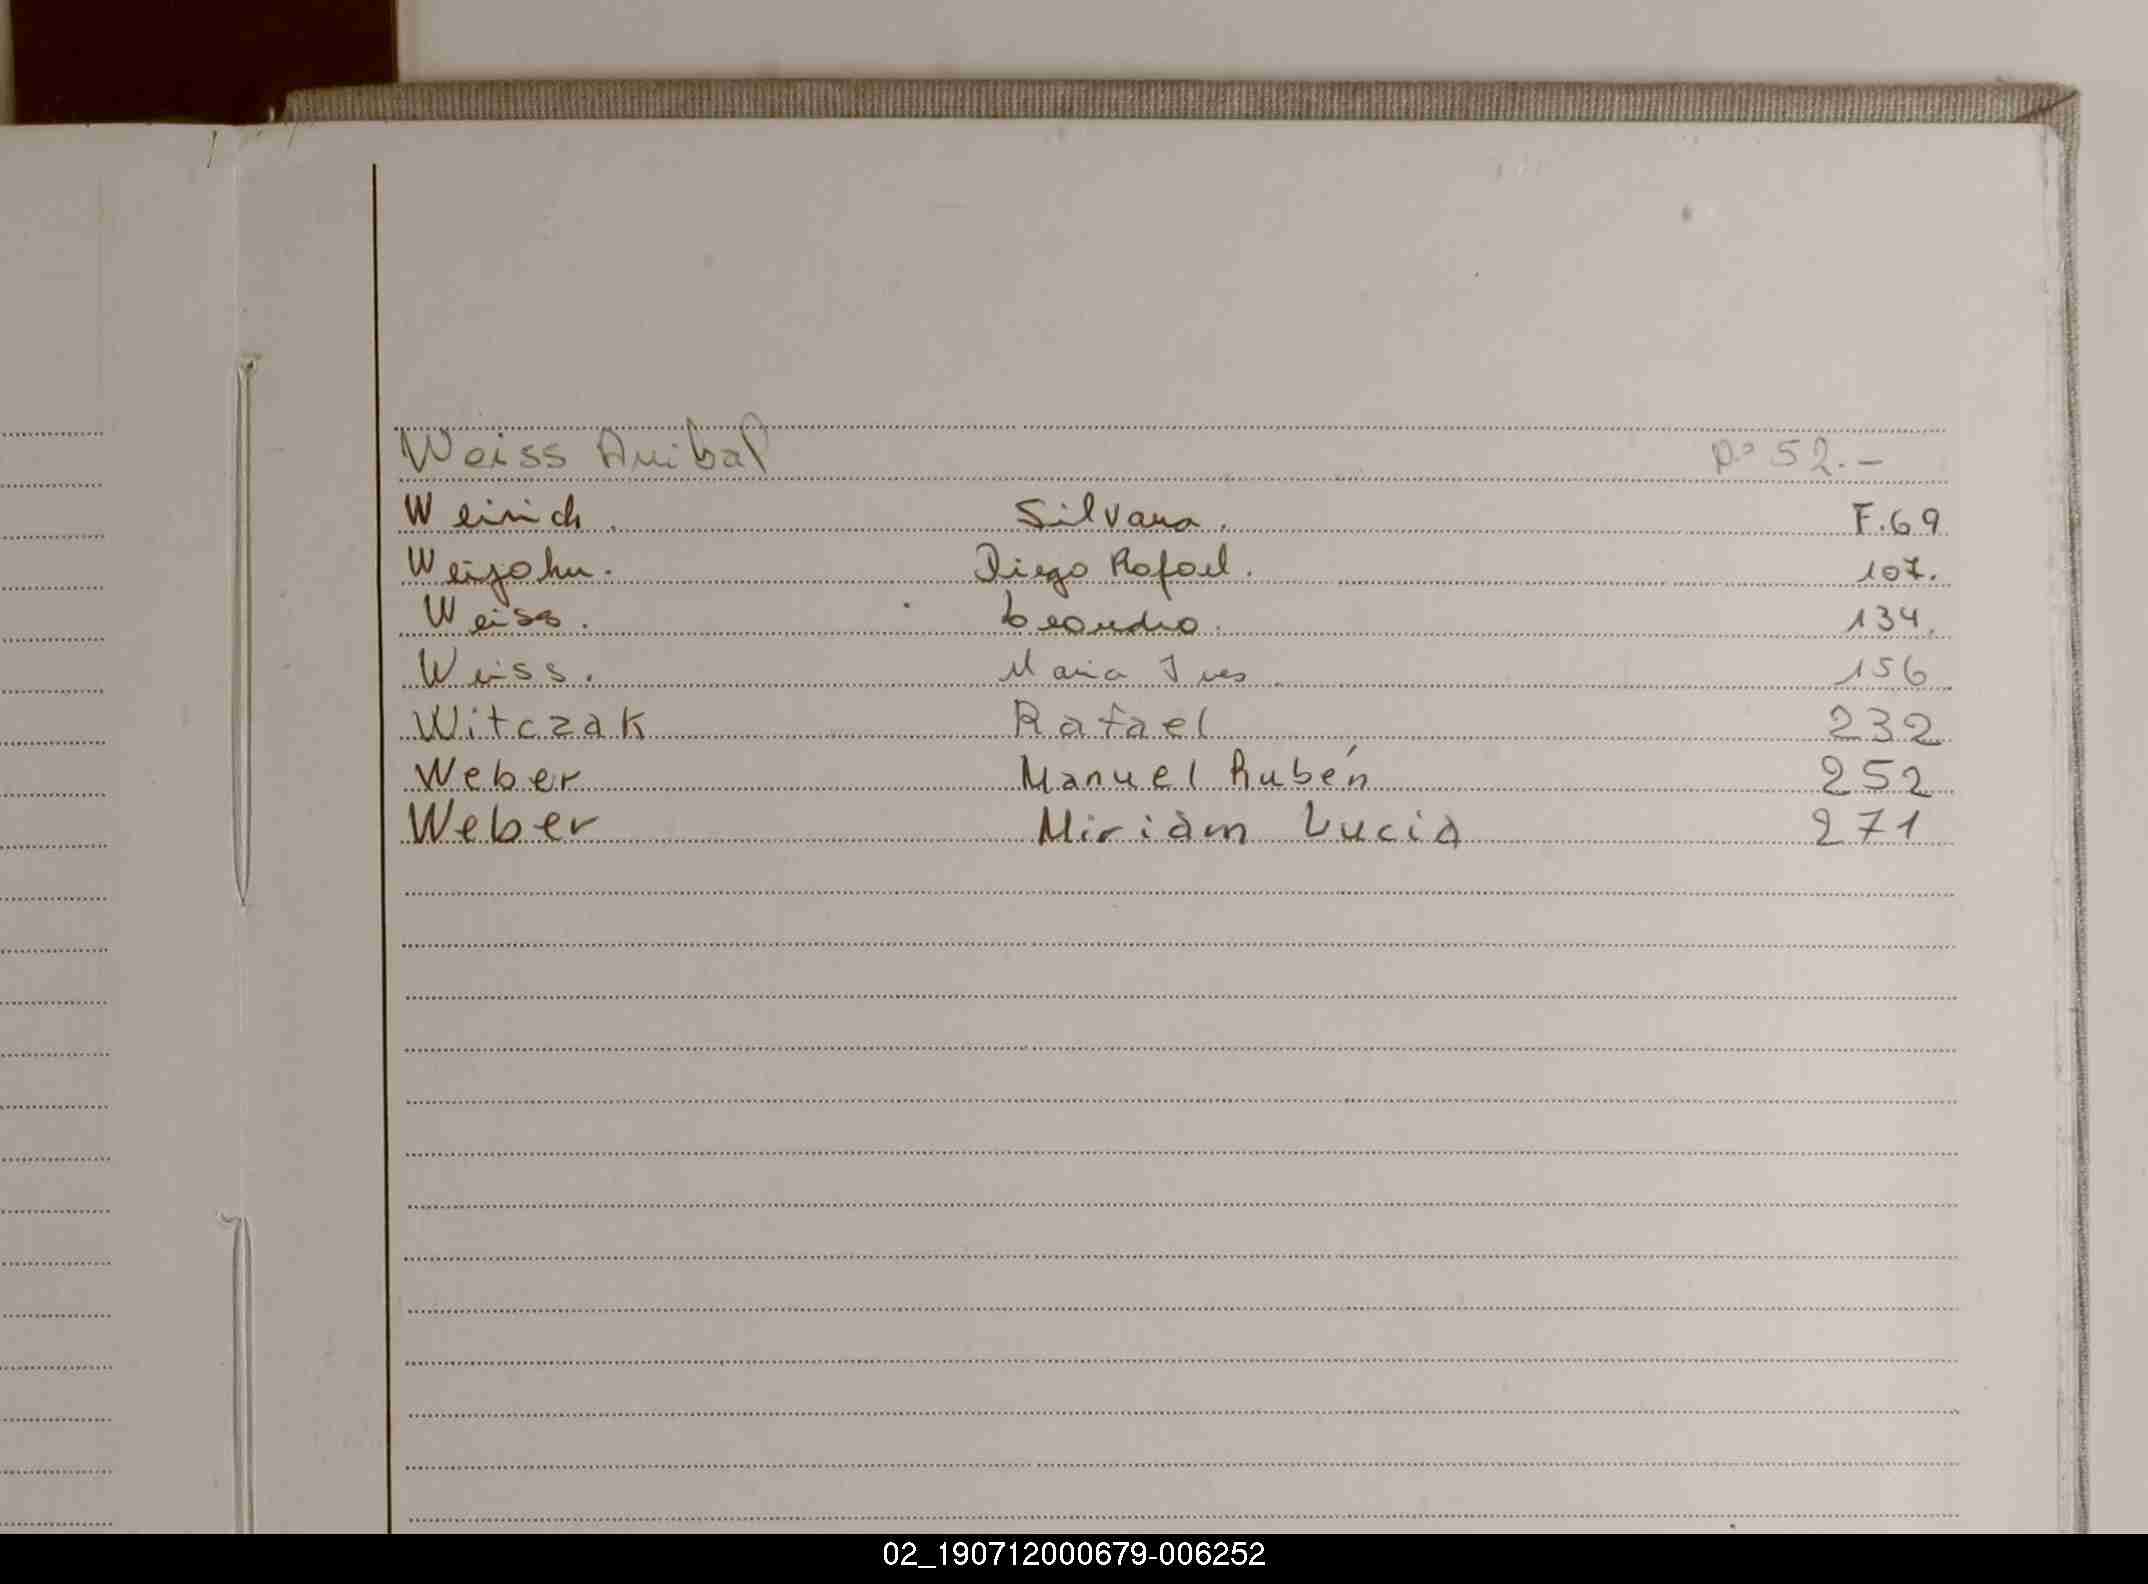 Weiss Anibal pº 52.-
Weinich. Silvana. F.69
Weijohn. Diego Rafael. 107.
Weiss. Leandro. 134.
Weiss. Maria Ines 156
Witczak Rafael 232
Weber Manuel Rubén 252
Weber Miriam Lucia 271
02_190712000679-006252